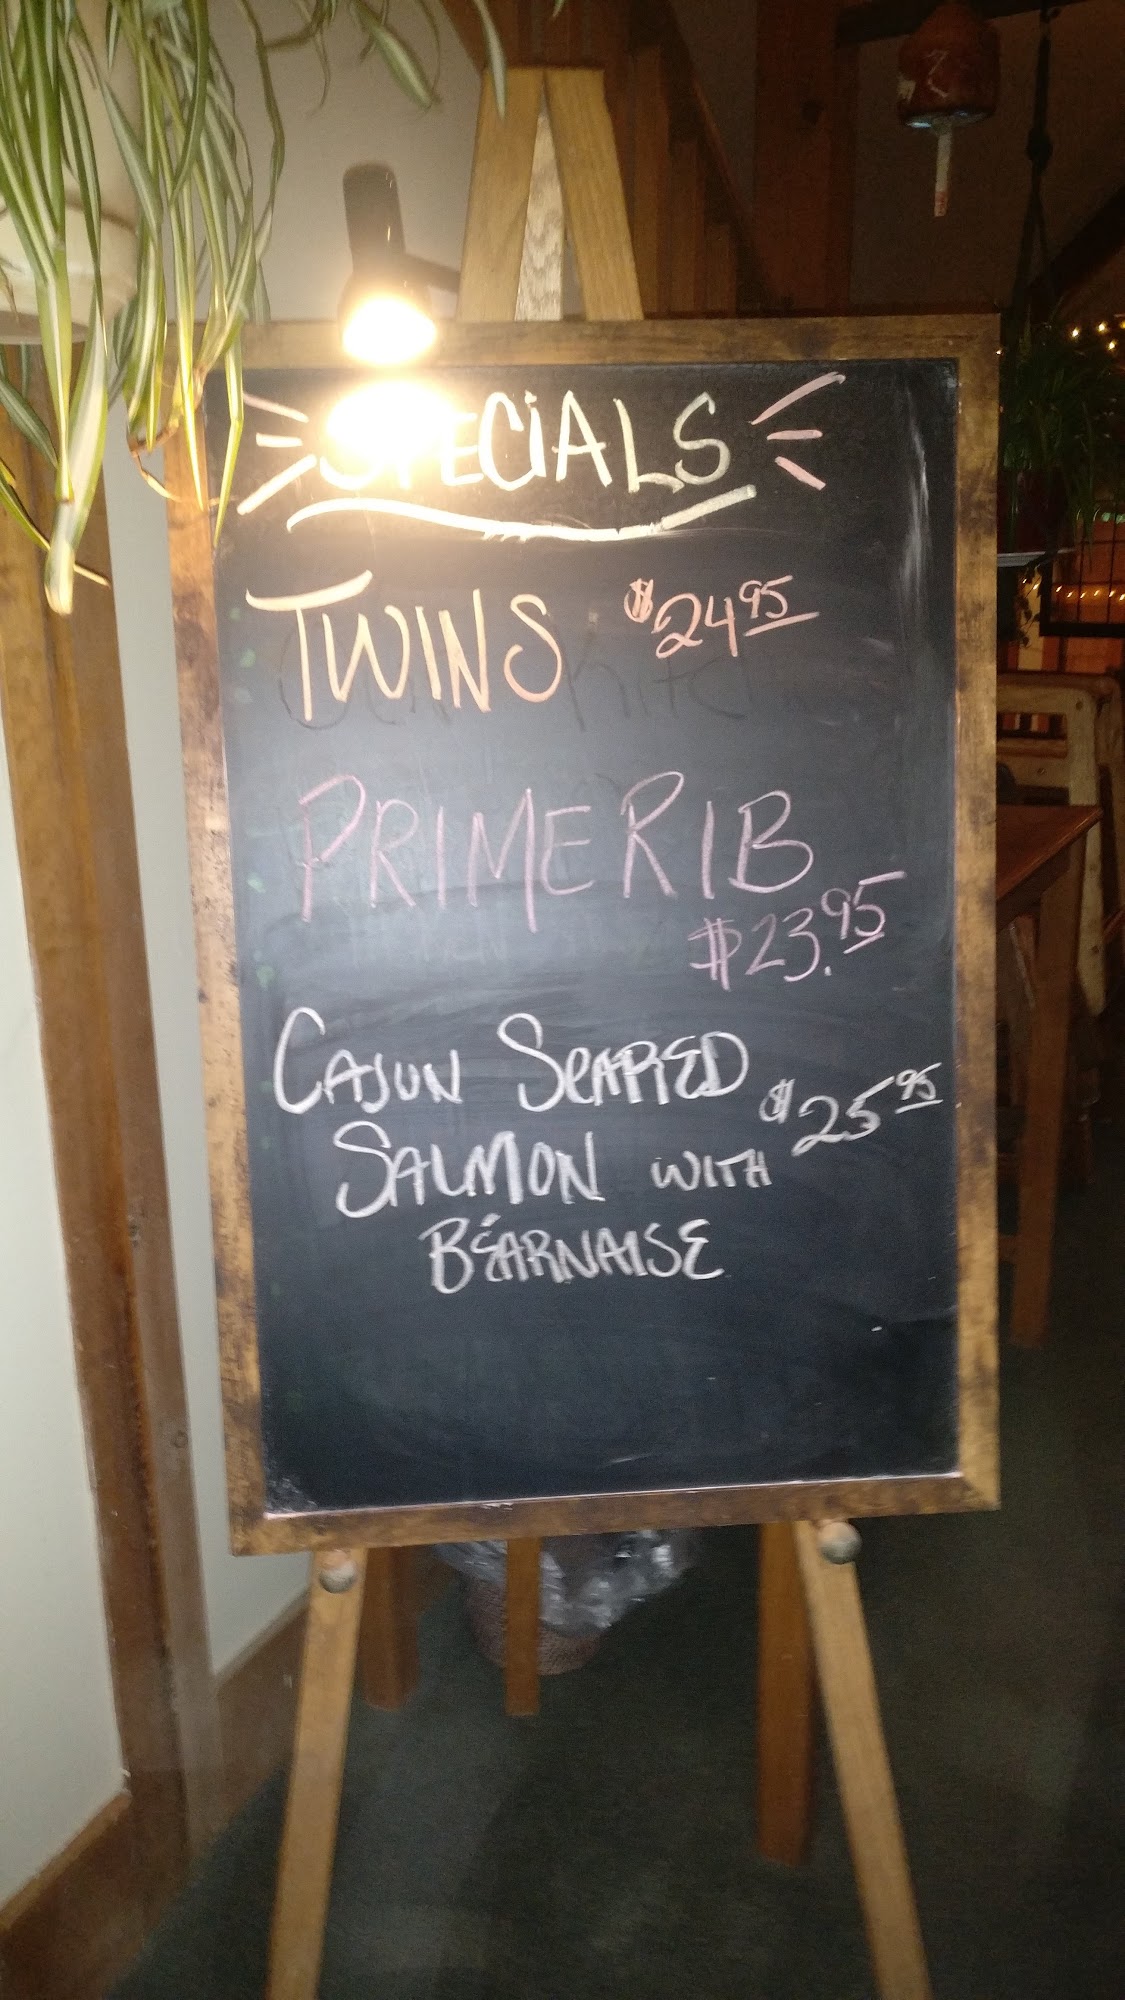 SPECIALS
TWINS $24.95
PRIME RIB
$23.95
CAJUN SEARED
SALMON WITH $25.95
BÉARNAISE